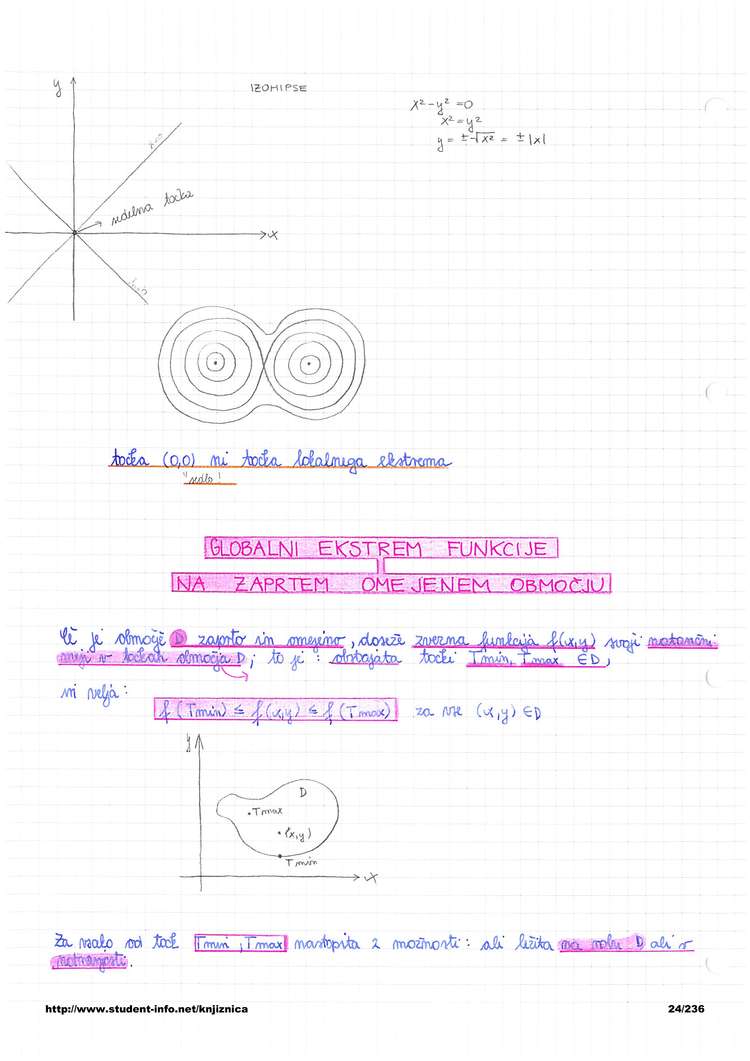 IZOHIPSE
x² - y² = 0
x² = y²
y = ±√x² = ± |x|
y
sedelna točka
x
točka (0,0) ni točka lokalnega ekstrema
"sedlo"
GLOBALNI EKSTREM FUNKCIJE
NA ZAPRTEM OMEJENEM OBMOČJU
Če je območje D zaprto in omejeno, doseže zvezna funkcija f(x,y) svoji natančni
meji v točkah območja D; to je: obstajata točki Tmin, Tmax ∈ D,
ni velja:
f (Tmin) ≤ f (x,y) ≤ f (Tmax) za vse (x,y) ∈ D
y
D
Tmax
(x,y)
Tmin
x
Za vsako od točk Tmin, Tmax nastopita 2 možnosti: ali ležita na robu D ali v
notranjosti.
http://www.student-info.net/knjiznica
24/236